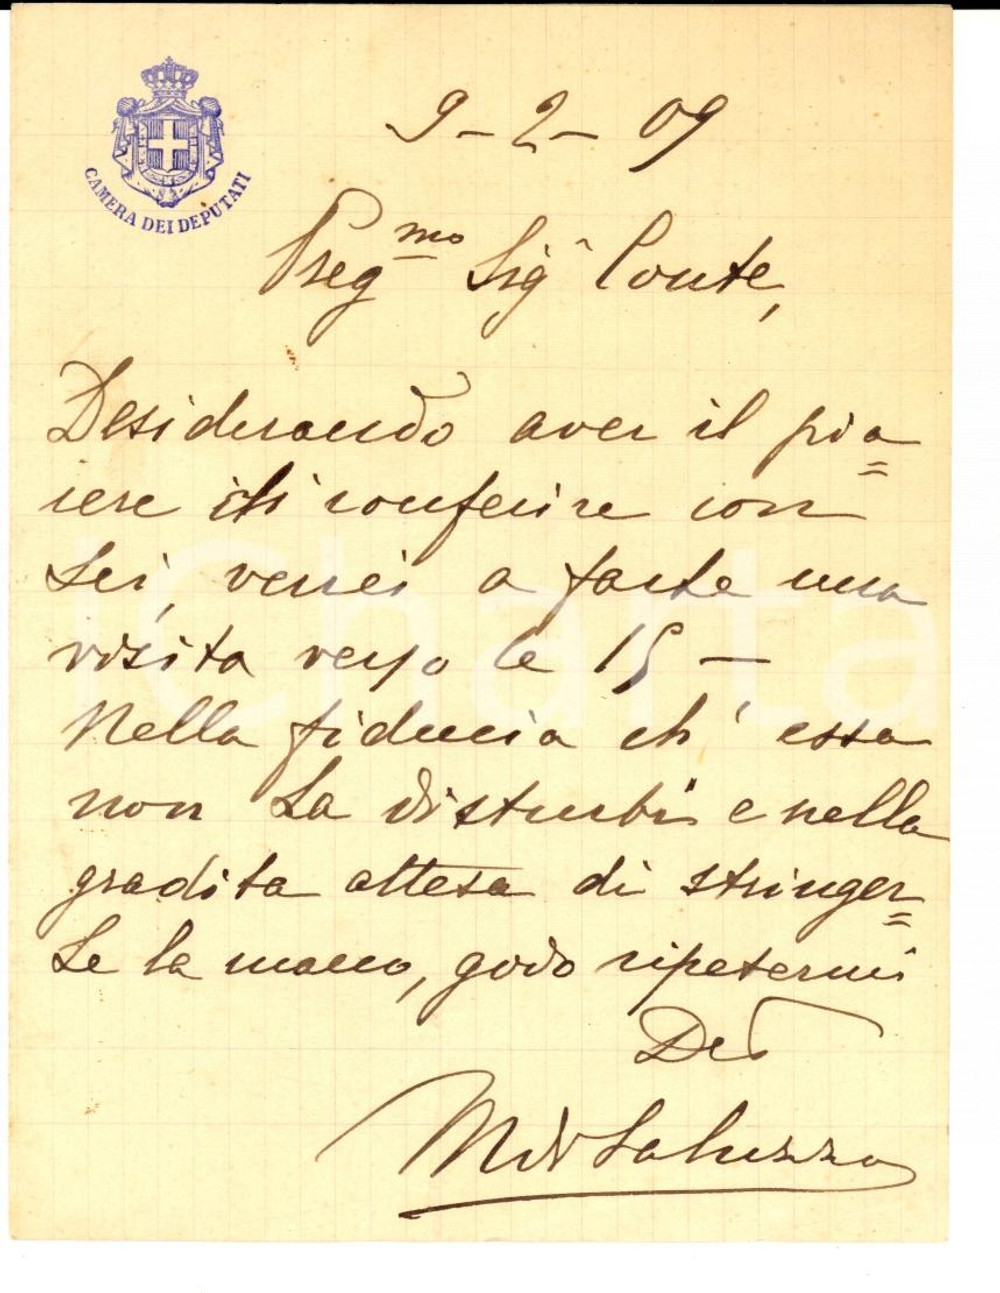 CAMERA DEI DEPUTATI
9-2-09
Preg^mo Sig^r Conte,
Desiderando aver il pia=
cere di conferire con
Lei, verrei a farLe una
visita verso le 15 —
Nella fiducia ch' essa
non La disturbi e nella
gradita attesa di stringer=
Le la mano, godo ripetermi
M di Saluzzo
iCharta